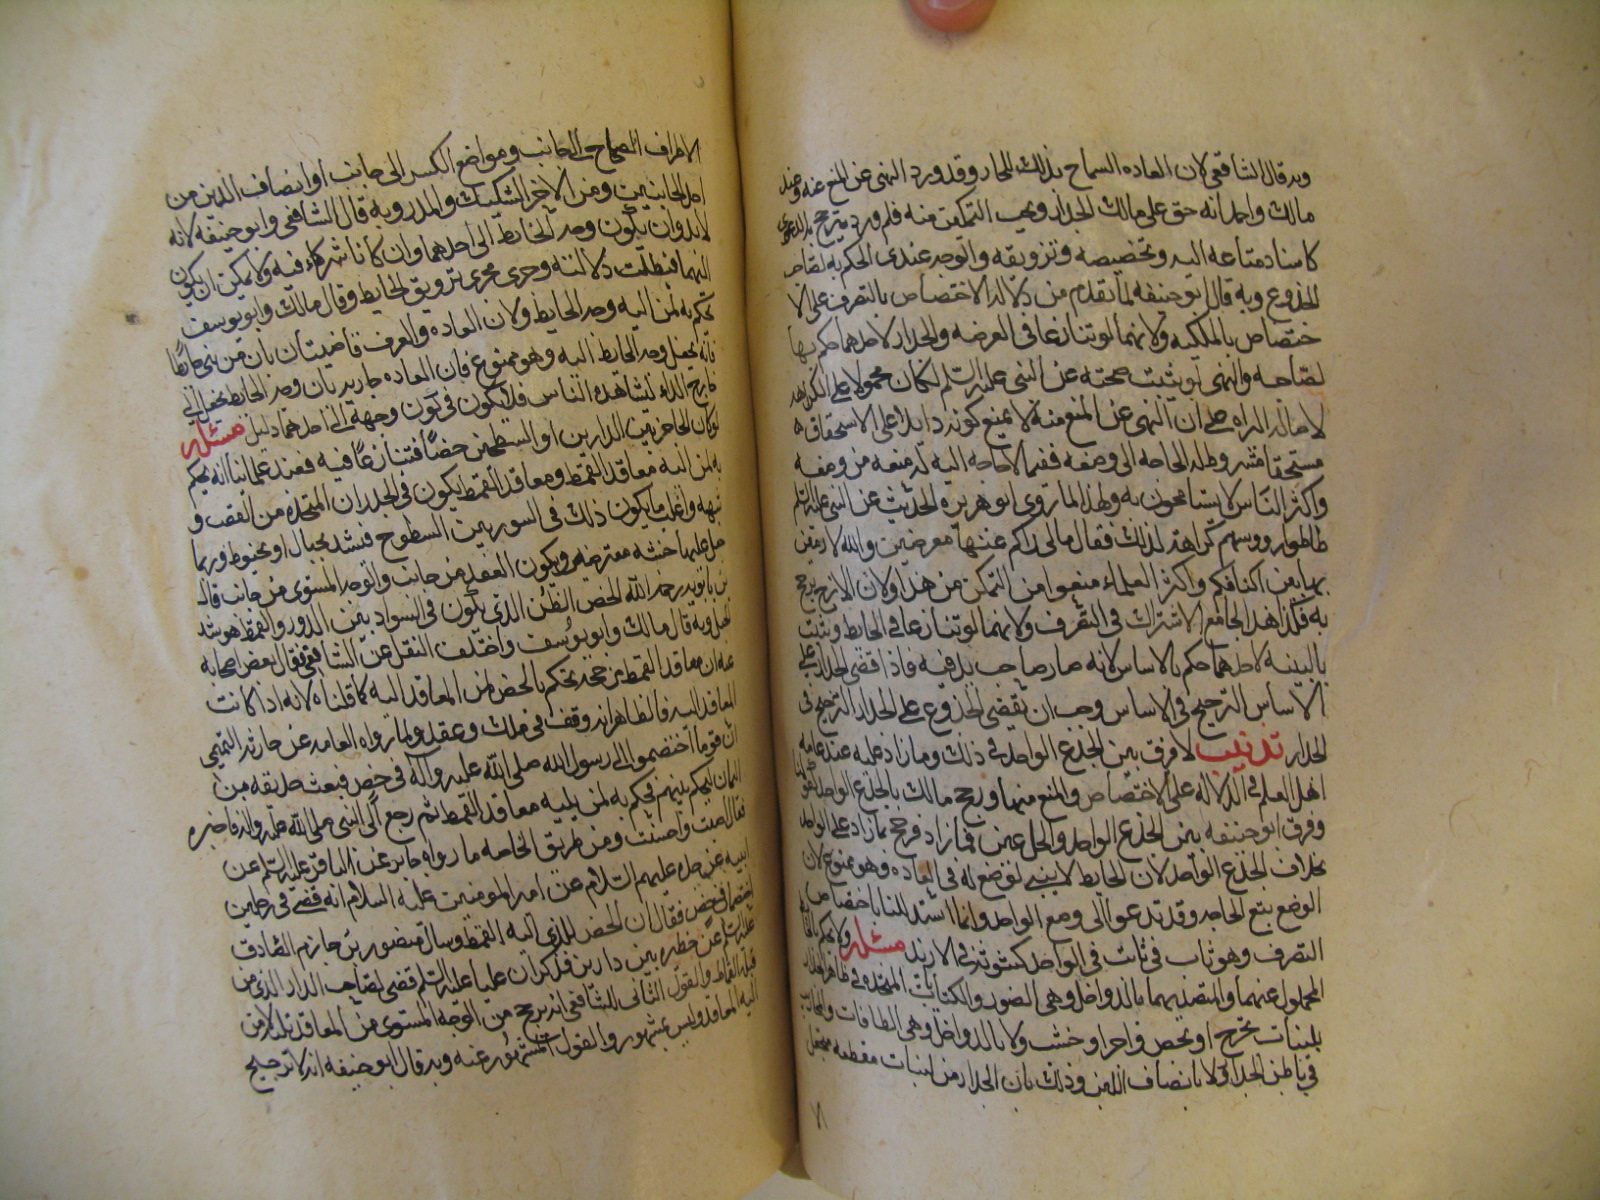 وبه قال الشافعي لان العاده السماح بذلك للجار وقد ورد النهى عن المنع عنه وعند
مالك واحمد انه حق على مالك الجدار ويجب التمكين منه فلم يرد به ترجح الدعوى
كاسناد متاعه اليه وتجصيصه وتزويقه والوجه عندى الحكم به لصاحب
الجذوع وبه قال ابو حنيفه لما تقدم من دلاله الاختصاص بالتصرف على الا
ختصاص بالملكيه ولانهما لو تنازعا في العرصه والجدار لاحدهما حكم بها
لصاحبه والنهى لو ثبت صحته عن النبى عليه السلم لكان محمولا على الكراهه
لاصاله البراه على ان النهى عن المنع منه لا يمنع كونه دالا على الاستحقاق
مستحقا مشروط له الحاجه الى وضعه ففيما لا حاجه اليه له منعه من وضعه
واكثر الناس لا يتسامحون به ولهذا لما روى ابو هريره الحديث عن النبى عليه السلم
طاطوا رووسهم كراهه لذلك فقال مالى اراكم عنها معرضين والله لارمين
بها بين اكتافكم واكثر العلماء منعوا من التمكن من هذا ولان الازج يرجح
به فكذا هذا بجامع الاشتراك في التصرف ولانهما لو تنازعا في الحايط وثبت
بالبينه لاحدهما حكم بالاساس لانه صار صاحب يد فيه فاذا اقتضى الجدار على
الاساس الترجيح في الاساس وجب ان يقتضى الجذوع على الجدار الترجيح في
الجدار تذنيب لا فرق بين الجذع الواحد في ذلك وما زاد عليه عند عامه
اهل العلم في الدلاله على الاختصاص والمنع منهما ورجح مالك بالجذع الواحد
وفرق ابو حنيفه بين الجذع الواحد والجذعين فما زاد فرجح بما زاد على الواحد
بخلاف الجذع الواحد لان الحايط لا يبنى لوضع له في العاده وهو ممنوع لان
الوضع يتبع الحاجه وقد تدعوا الى وضع الواحد وانما استدللنا باختصاص
التصرف وهو ثابت في الواحد كثبوته في الازيد مسئله ولا يحكم
المحمول عنهما والمتصله بهما بالدواخل وهى الصور والكتابات المتخذه في ظاهر الجدار
بلبنات تخرج او بجص واجر او خشب ولا بالدواخل وهى الطاقات والمحاريب
في باطن الجدار ولا بانصاف اللبن وذلك بان الجدار من لبنات مقطعه فتجعل
الاطراف الصحاح الى الجانب ومواضع الكسر الى جانب او انصاف اللبن من
احد الجانبين ومن الاخر الشكيك والمدر وبه قال الشافعي وابو حنيفه لانه
لابد وان يكون وجه الحايط الى احدهما وان كانا شركاء فيه ولا يمكن ان يكون
اليهما فبطلت دلالته وجرى مجرى تزويق الحايط وقال مالك وابو يوسف
يحكم به لمن اليه وجه الحايط ولان العاده والعرف قاضيتان بان من بنى حائطا
فانه يجعل وجه الحايط اليه وهو ممنوع فان العاده جاريه بان وجه الحايط يجعل الى
خارج الدار ليشاهده الناس فلا يكون في كون وجهه الى احدهما دليل مسئله
لو كان الحاجز بين الدارين او السطحين خصا فتنازعا فيه فعند علمائنا انه يحكم
به لمن اليه معاقد القمط ومعاقد القمط يكون في الجدران المتخذه من القصب و
شبهه واغلب ما يكون ذلك في السور بين السطوح فتشد بحبال او بخيوط وربما
جعل عليها خشبه معترضه ويكون العقد من جانب والوجه المستوى من جانب قال
بن بابويه رحمه الله الخص الظن الذى يكون في السواد بين الدور والقمط هو شد
الحبل وبه قال مالك وابو يوسف واختلف النقل عن الشافعي فقال بعض اصحابه
عنه ان معاقد القمط يرجح به فيحكم بالخص لمن المعاقد اليه كما قلناه لانه اذا كانت
المعاقد اليه فالظاهر انه وقف في ملك وعقد ولما رواه العامه عن جاريه التميمى
ان قوما اختصموا الى رسول الله صلى الله عليه وآله في خص فبعث حذيفه بن
اليمان ليحكم بينهم فحكم به لمن يليه معاقد القمط ثم رجع الى النبى صلى الله عليه وآله فاخبره
فقال اصبت واحسنت ومن طريق الخاصه ما رواه جابر عن الباقر عليه السلم عن
ابيه عن جده عليهم السلام عن امير المومنين عليه السلام انه قضى في رجلين
اختصما في خص فقال ان الخص للذى اليه القمط وسال منصور بن حازم الصادق
عليه السلم عن خطيره بين دارين فذكر ان عليا عليه السلم قضى لصاحب الدار الذى من
قبله القماط والقول الثانى للشافعى انه يرجح من الوجه المستوى من المعاقد بدلا من
اليه المعاقد وليس بمشهور والقول المشهور عنه وبه قال ابو حنيفه انه لا ترجيح